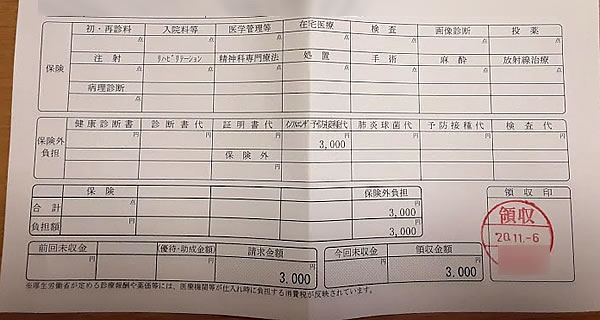 初・再診料 入院料等 医学管理等 在宅医療 検査 画像診断 投薬
点 点 点 点 点 点 点
保険
注射 リハビリテーション 精神科専門療法 処置 手術 麻酔 放射線治療
点 点 点 点 点 点 点
病理診断
点
健康診断書 診断書代 証明書代 インフルエンザ予防接種代 肺炎球菌代 予防接種代 検査代
円 円 円 円 円 円 円
3,000
保険外
負担
保険外
円
保険 保険外負担 領収印
合計 点 円
3,000
負担額 円 円
3,000
領収
20.11.-6
前回未収金 (優待・助成金額) 請求金額 今回未収金 領収金額
円 円 円 円 円
3,000 3,000
※厚生労働省が定める診療報酬や薬価等には、医療機関等が仕入れ時に負担する消費税が反映されています。